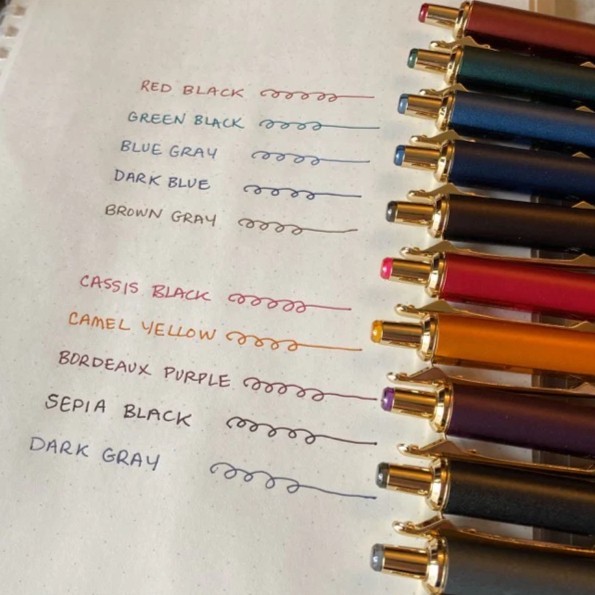 RED BLACK
GREEN BLACK
BLUE GRAY
DARK BLUE
BROWN GRAY
CASSIS BLACK
CAMEL YELLOW
BORDEAUX PURPLE
SEPIA BLACK
DARK GRAY